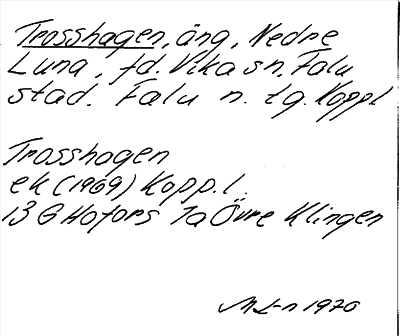 Trosshagen, äng, Nedre
Luna, fd. Vika sn, Falu
stad. Falu n. tg. Koppl
Trosshagen
ek (1969) Kopp.l.
13 G Hofors 7a Övre Klingen
ML-n 1970